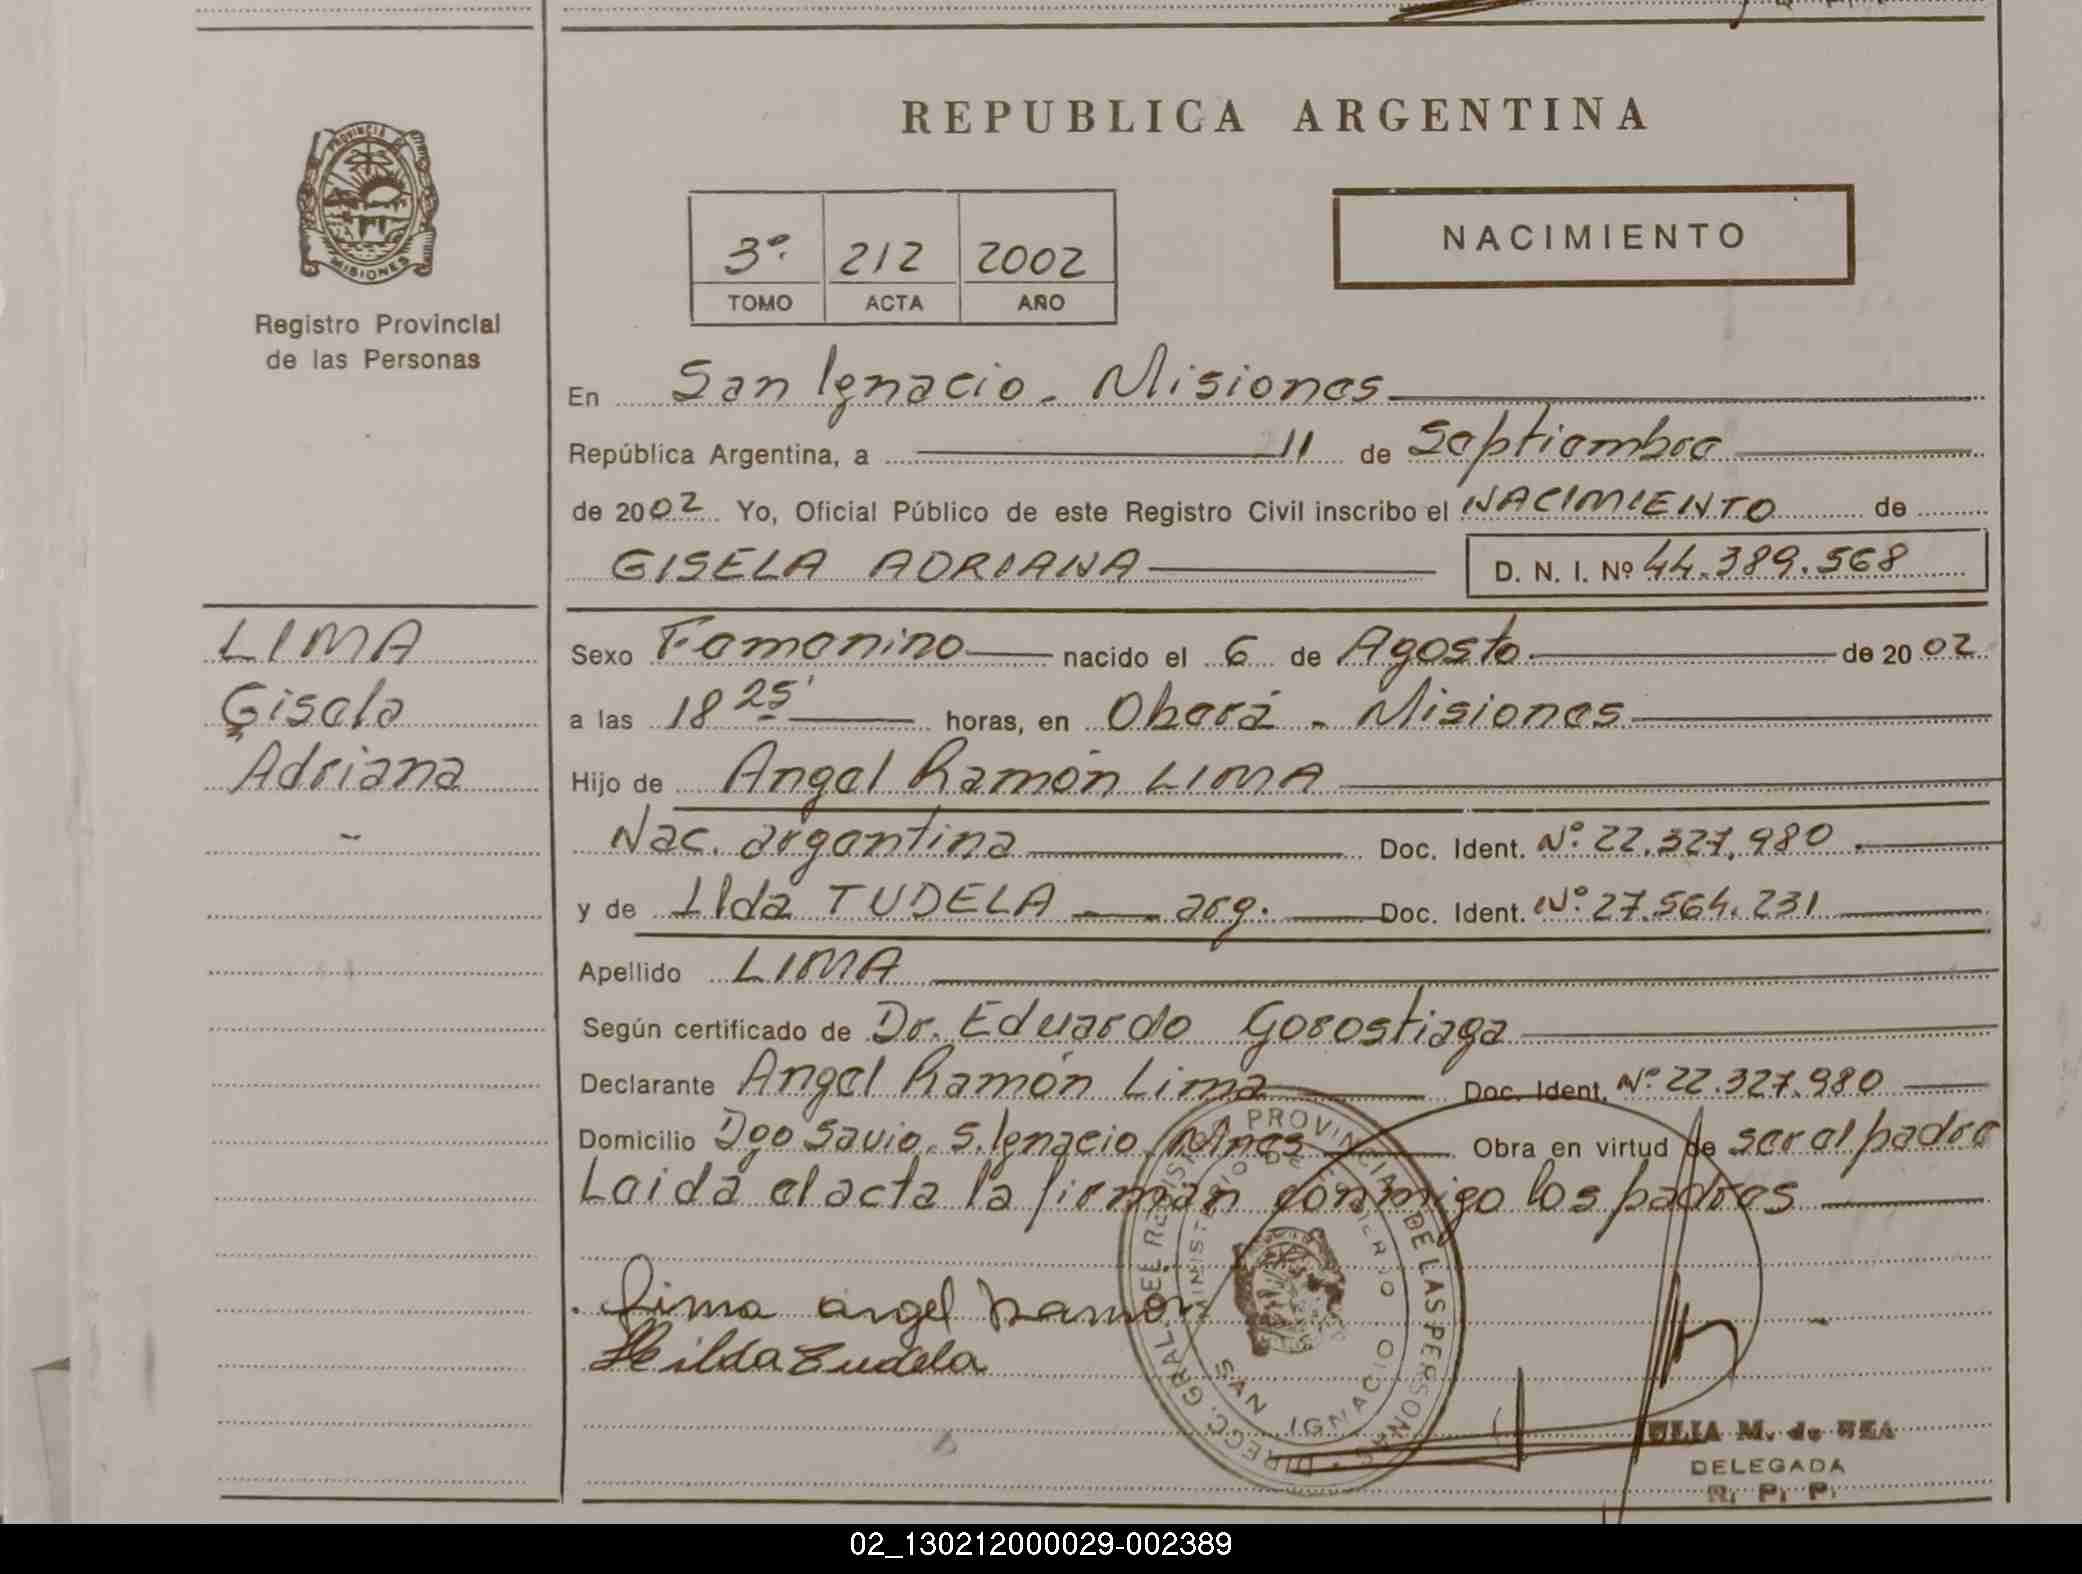 REPUBLICA ARGENTINA
PROVINCIA DE
MISIONES
Registro Provincial
de las Personas
3º. 212 2002
TOMO ACTA AÑO
NACIMIENTO
En San Ignacio - Misiones
República Argentina, a 11 de Septiembre
de 2002 Yo, Oficial Público de este Registro Civil inscribo el NACIMIENTO de
GISELA ADRIANA D. N. I. Nº 44.389.568
LIMA
Gisela
Adriana
Sexo Femenino nacido el 6 de Agosto de 2002
a las 18 25' horas, en Oberá - Misiones
Hijo de Angel Ramón LIMA
Nac. argentina Doc. Ident. Nº 22.327.980
y de Ilda TUDELA arg. Doc. Ident. Nº 27.564.231
Apellido LIMA
Según certificado de Dr. Eduardo Gorostiaga
Declarante Angel Ramón Lima Doc. Ident. Nº 22.327.980
Domicilio Dgo Savio. S. Ignacio Mnes Obra en virtud de ser el padre
Leida el acta la firman conmigo los padres
Lima angel Ramon
Hilda Tudela
DIRECC. GRAL. DEL REGISTRO PROVINCIAL DE LAS PERSONAS
MINISTERIO DE GOBIERNO
SAN IGNACIO
ULIA M. de
DELEGADA
R. P. P.
02_130212000029-002389